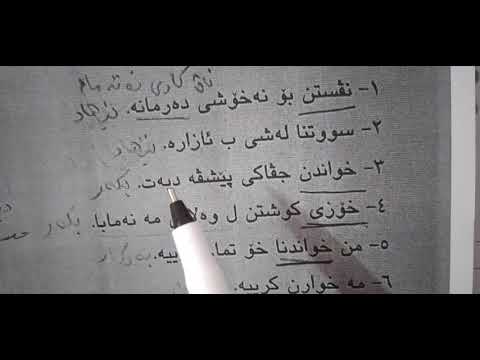 ناڤێ کاری نە تەمام
١- نڤستن بۆ نەخۆشی دەرمانە. نێهاد
٢- سووتنا لەشی ب ئازارە. نێهاد
٣- خواندن جڤاکی پێشڤە دبەت. بکەر
٤- خۆزی کوشتن ل مە نەمابا. بکەر
٥- من خواندنا خۆ ییە.
٦- مە خوارن کرییە.